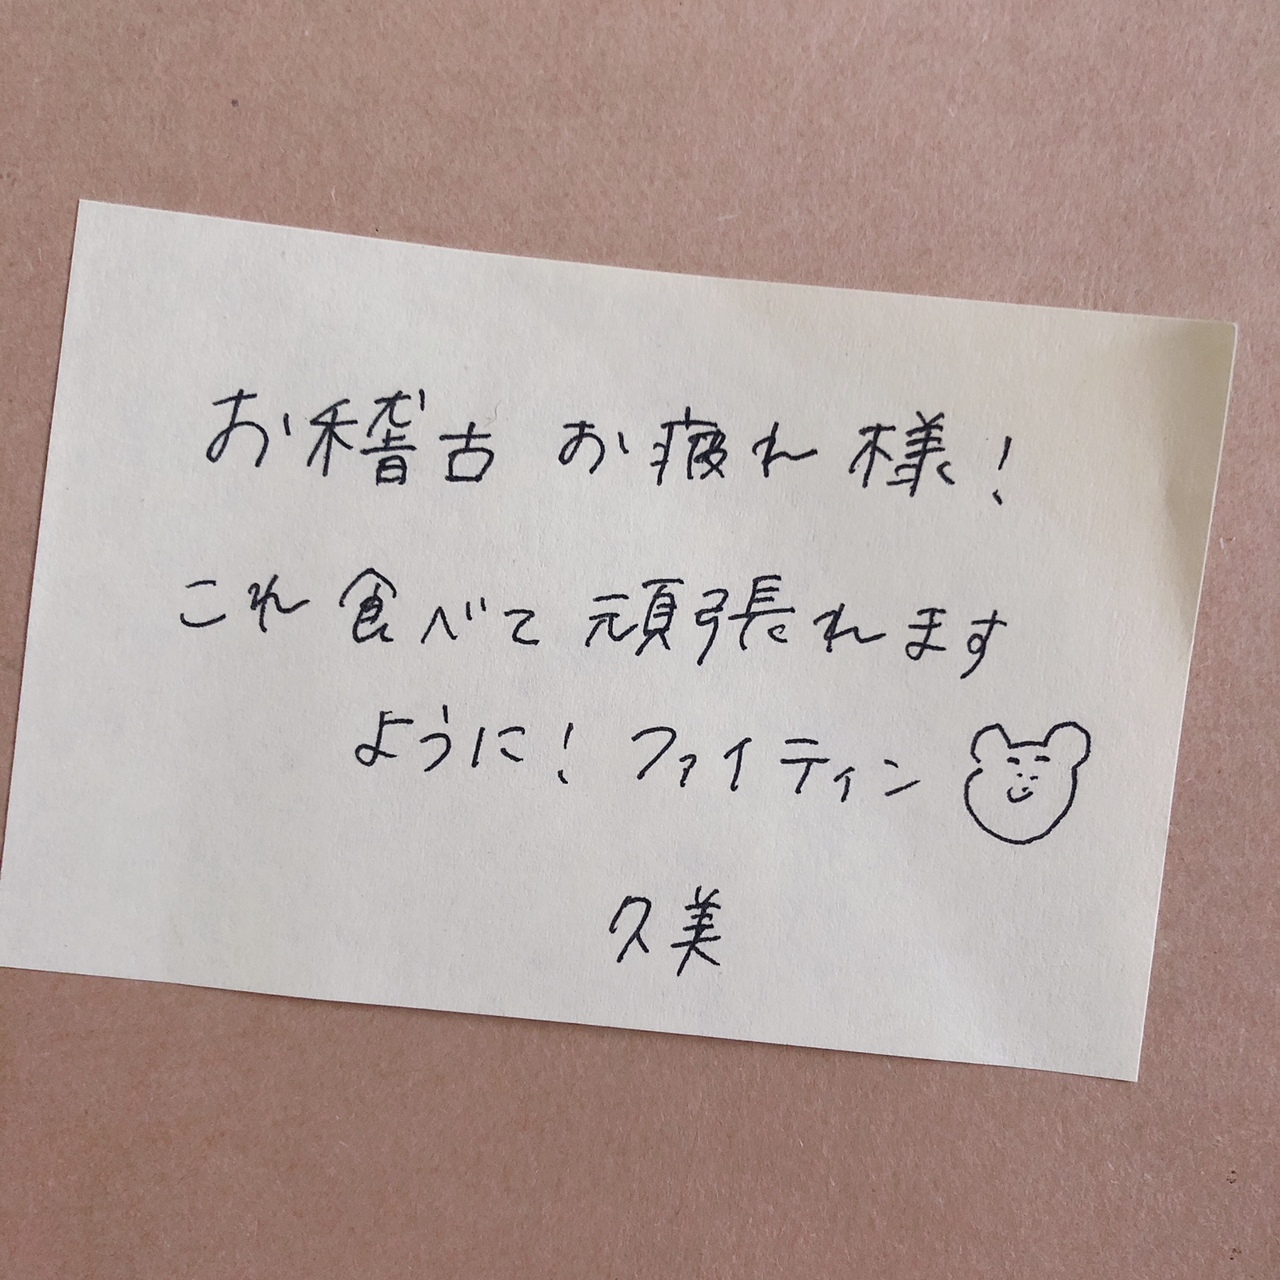 お稽古 お疲れ様!
これ食べて頑張れます
ように! ファイティン
久美